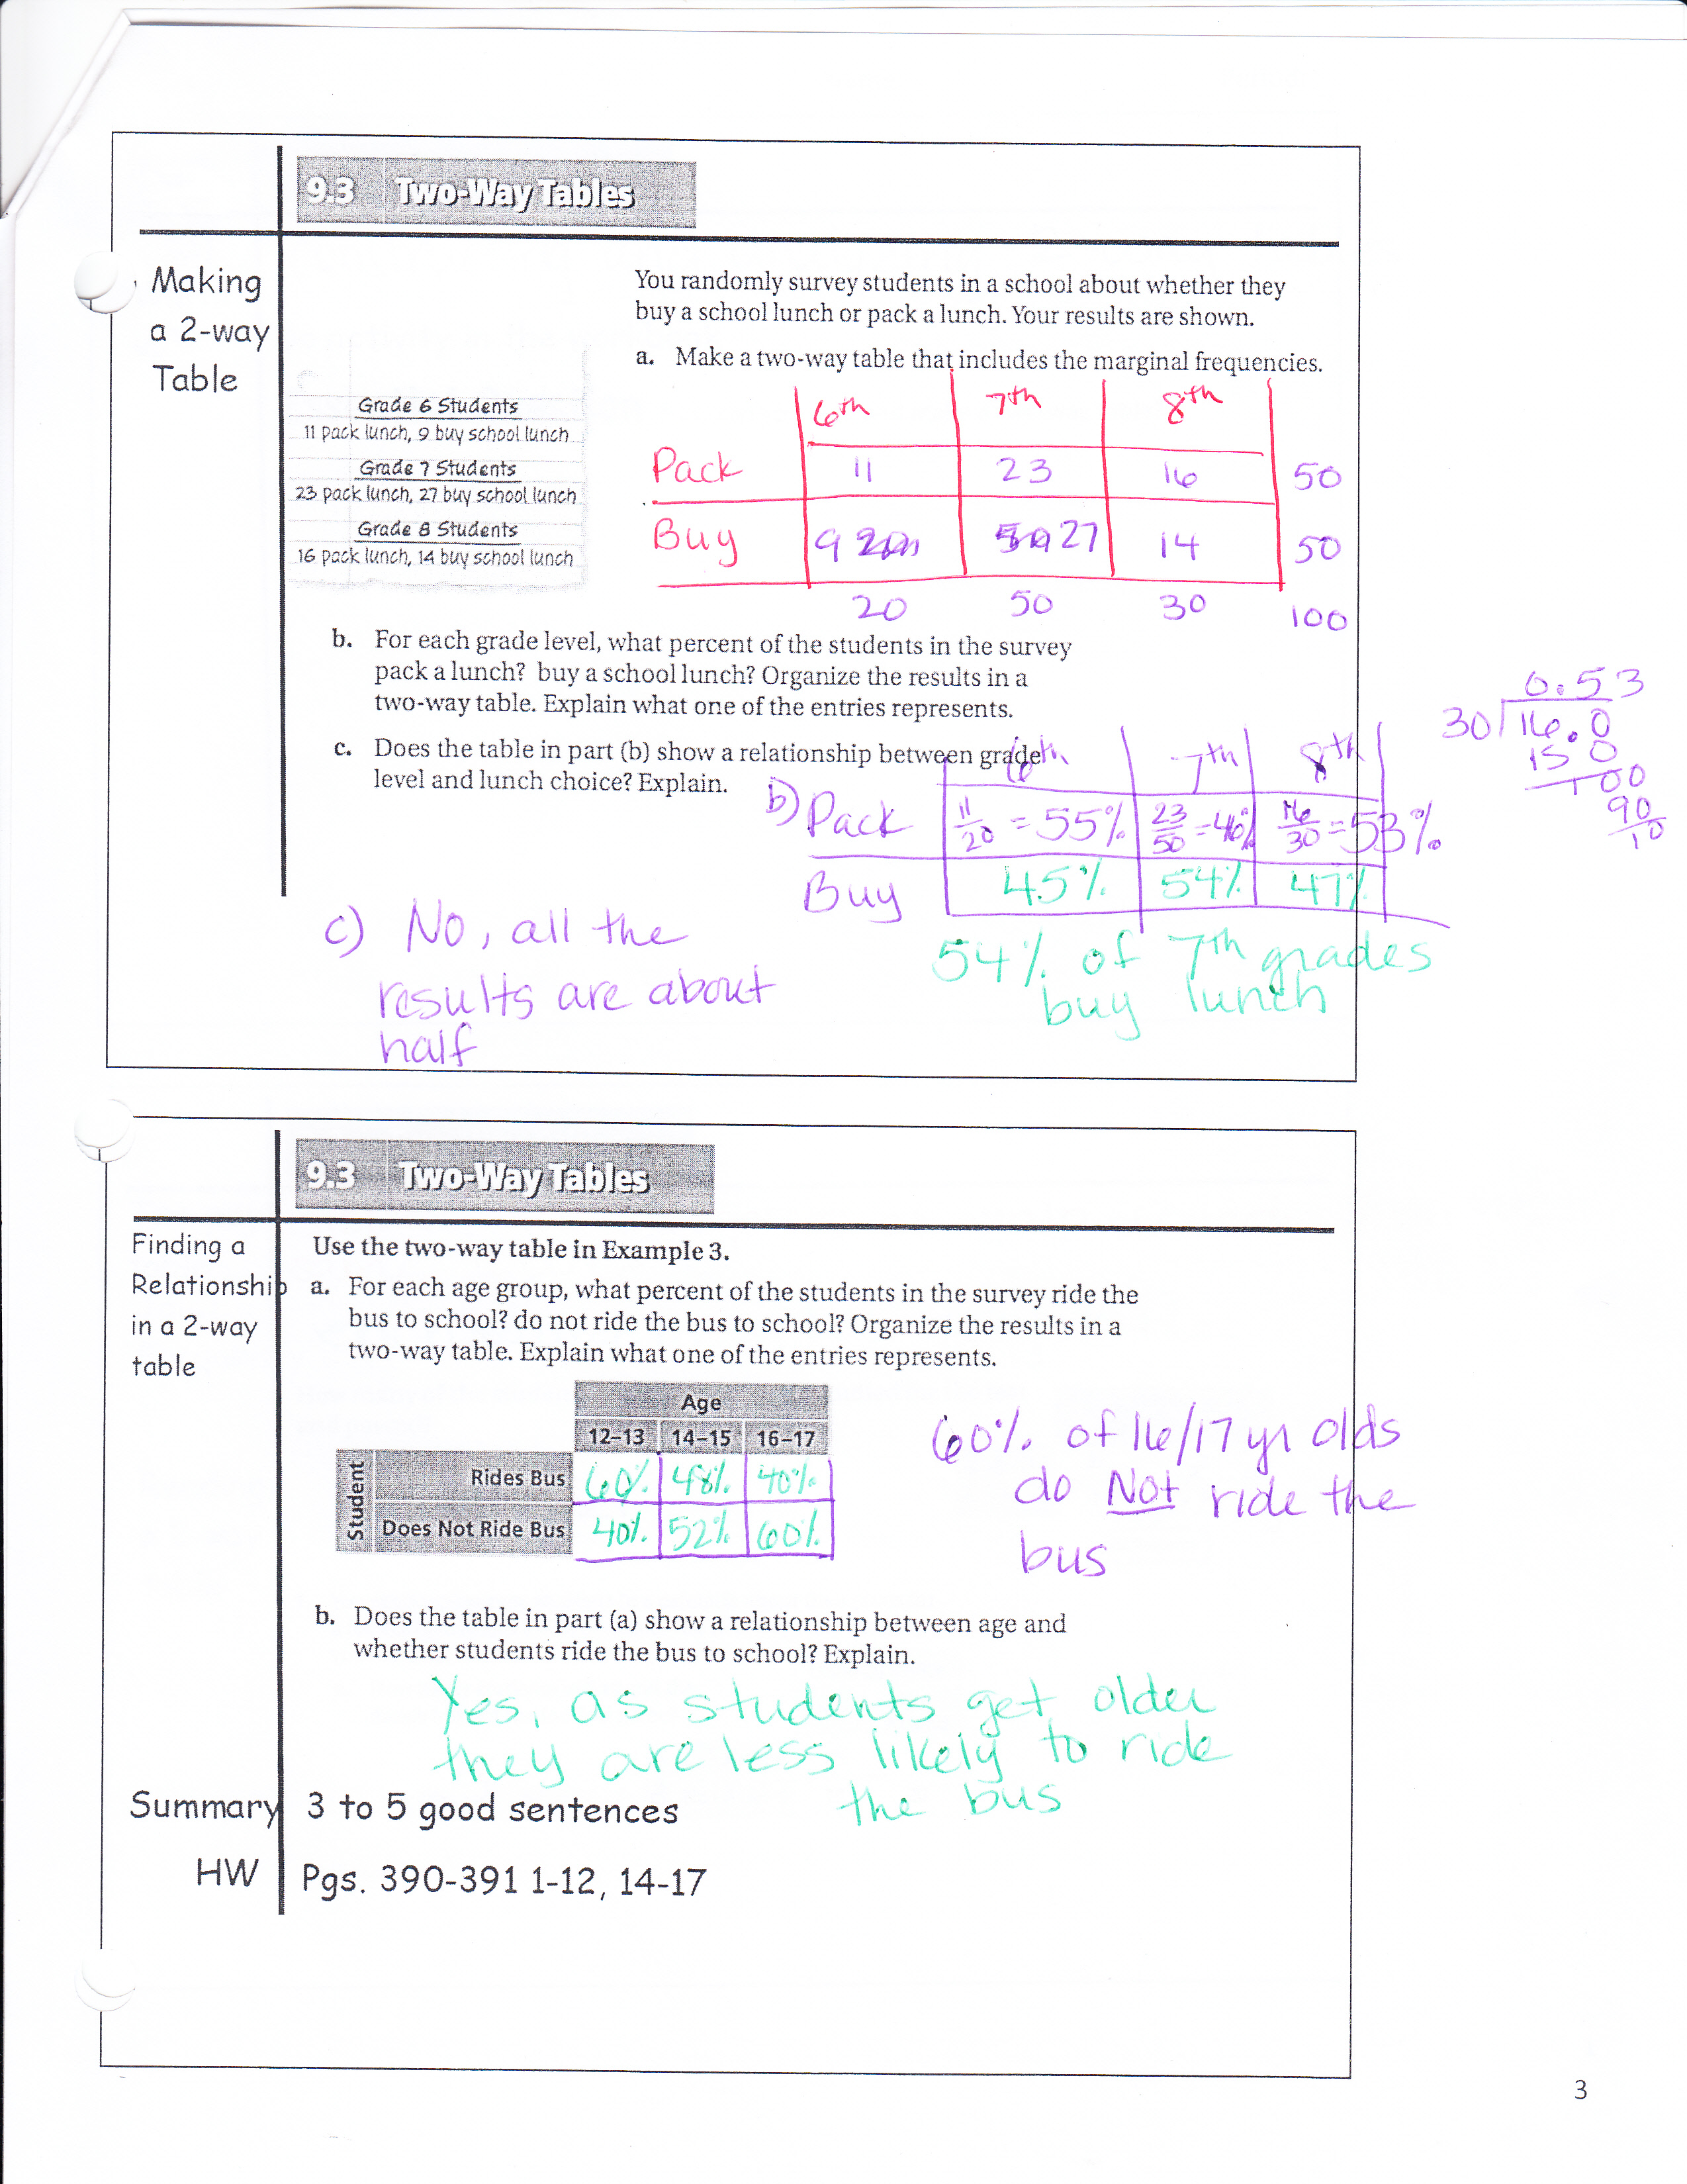 9.3 Two-Way Tables
Making
a 2-way
Table
You randomly survey students in a school about whether they
buy a school lunch or pack a lunch. Your results are shown.
a. Make a two-way table that includes the marginal frequencies.
Grade 6 Students
11 pack lunch, 9 buy school lunch
Grade 7 Students
23 pack lunch, 27 buy school lunch
Grade 8 Students
16 pack lunch, 14 buy school lunch
6th 7th 8th
Pack 11 23 16 50
Buy 9 27 14 50
20 50 30 100
b. For each grade level, what percent of the students in the survey
pack a lunch? buy a school lunch? Organize the results in a
two-way table. Explain what one of the entries represents.
c. Does the table in part (b) show a relationship between grade
level and lunch choice? Explain.
0.53
30 16.0
15 0
100
90
10
6th 7th 8th
b) Pack 11/20 = 55% 23/50 = 46% 16/30 = 53%
Buy 45% 54% 47%
54% of 7th grades
buy lunch
c) No, all the
results are about
half
9.3 Two-Way Tables
Finding a
Relationship
in a 2-way
table
Use the two-way table in Example 3.
a. For each age group, what percent of the students in the survey ride the
bus to school? do not ride the bus to school? Organize the results in a
two-way table. Explain what one of the entries represents.
Age
12–13 14–15 16–17
Student
Rides Bus 60% 48% 40%
Does Not Ride Bus 40% 52% 60%
60% of 16/17 yr olds
do Not ride the
bus
b. Does the table in part (a) show a relationship between age and
whether students ride the bus to school? Explain.
Yes, as students get older
they are less likely to ride
the bus
Summary 3 to 5 good sentences
HW Pgs. 390-391 1-12, 14-17
3